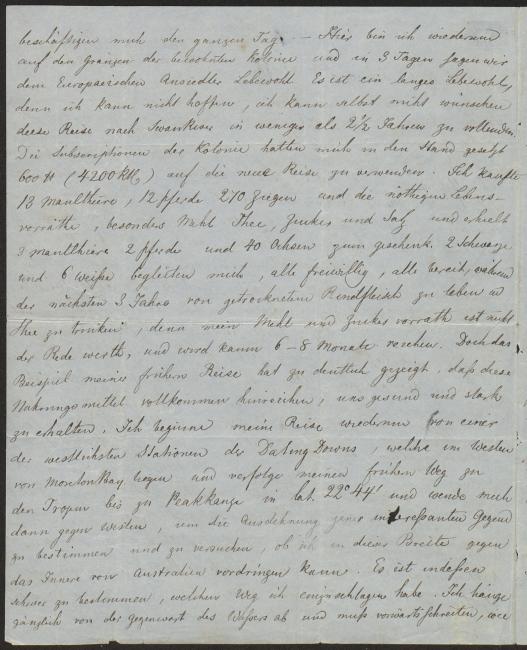 beschäftigen mich den ganzen Tag. — Hier bin ich wiederum
auf den Gränzen der bewohnten Kolonie und in 3 Tagen sagen wir
dem Europäischen Ansiedler Lebewohl. Es ist ein langes Lebewohl,
denn ich kann nicht hoffen, ich kann selbst nicht wünschen
diese Reise nach Swan River in weniger als 2½ Jahren zu vollenden.
Die Subscriptionen der Kolonie hatten mich in den Stand gesetzt
600 (4200) auf die neue Reise zu verwenden. Ich kaufte
13 Maulthiere, 12 Pferde 270 Ziegen und die nöthigen Lebens-
vorräthe, besonders Mehl Thee, Zucker und Salz und erhielt
3 Maulthiere 2 Pferde und 40 Ochsen zum Geschenk. 2 Schwarze
und 6 Weiße begleiten mich, alle freiwillig, alle bereit, während
der nächsten 3 Jahre von getrocknetem Rindfleisch zu leben u
Thee zu trinken, denn mein Mehl und Zucker vorrath ist nicht
der Rede werth, und wird kaum 6-8 Monate reichen. Doch das
Beispiel meiner frühern Reise hat zu deutlich gezeigt, daß diese
Nahrungsmittel vollkommen hinreichen, uns gesund und stark
zu erhalten. Ich beginne meine Reise wiederum von einer
der westlichsten Stationen der Darling Downs, welche im Westen
von MoretonBay liegen und verfolge meinen frühern Weg zu
den Tropen bis zu Peakkange in lat. 22°44' und wende mich
dann gegen Westen, um die Ausdehnung jener interessanten Gegend
zu bestimmen und zu versuchen, ob ich in dieser Breite gegen
das Innere von Australien vordringen kann. Es ist indessen
schwer zu bestimmen, welchen Weg ich einzuschlagen habe. Ich hänge
gänzlich von der Gegenwart des Wassers ab und muß vorwärtsschreiten, wie